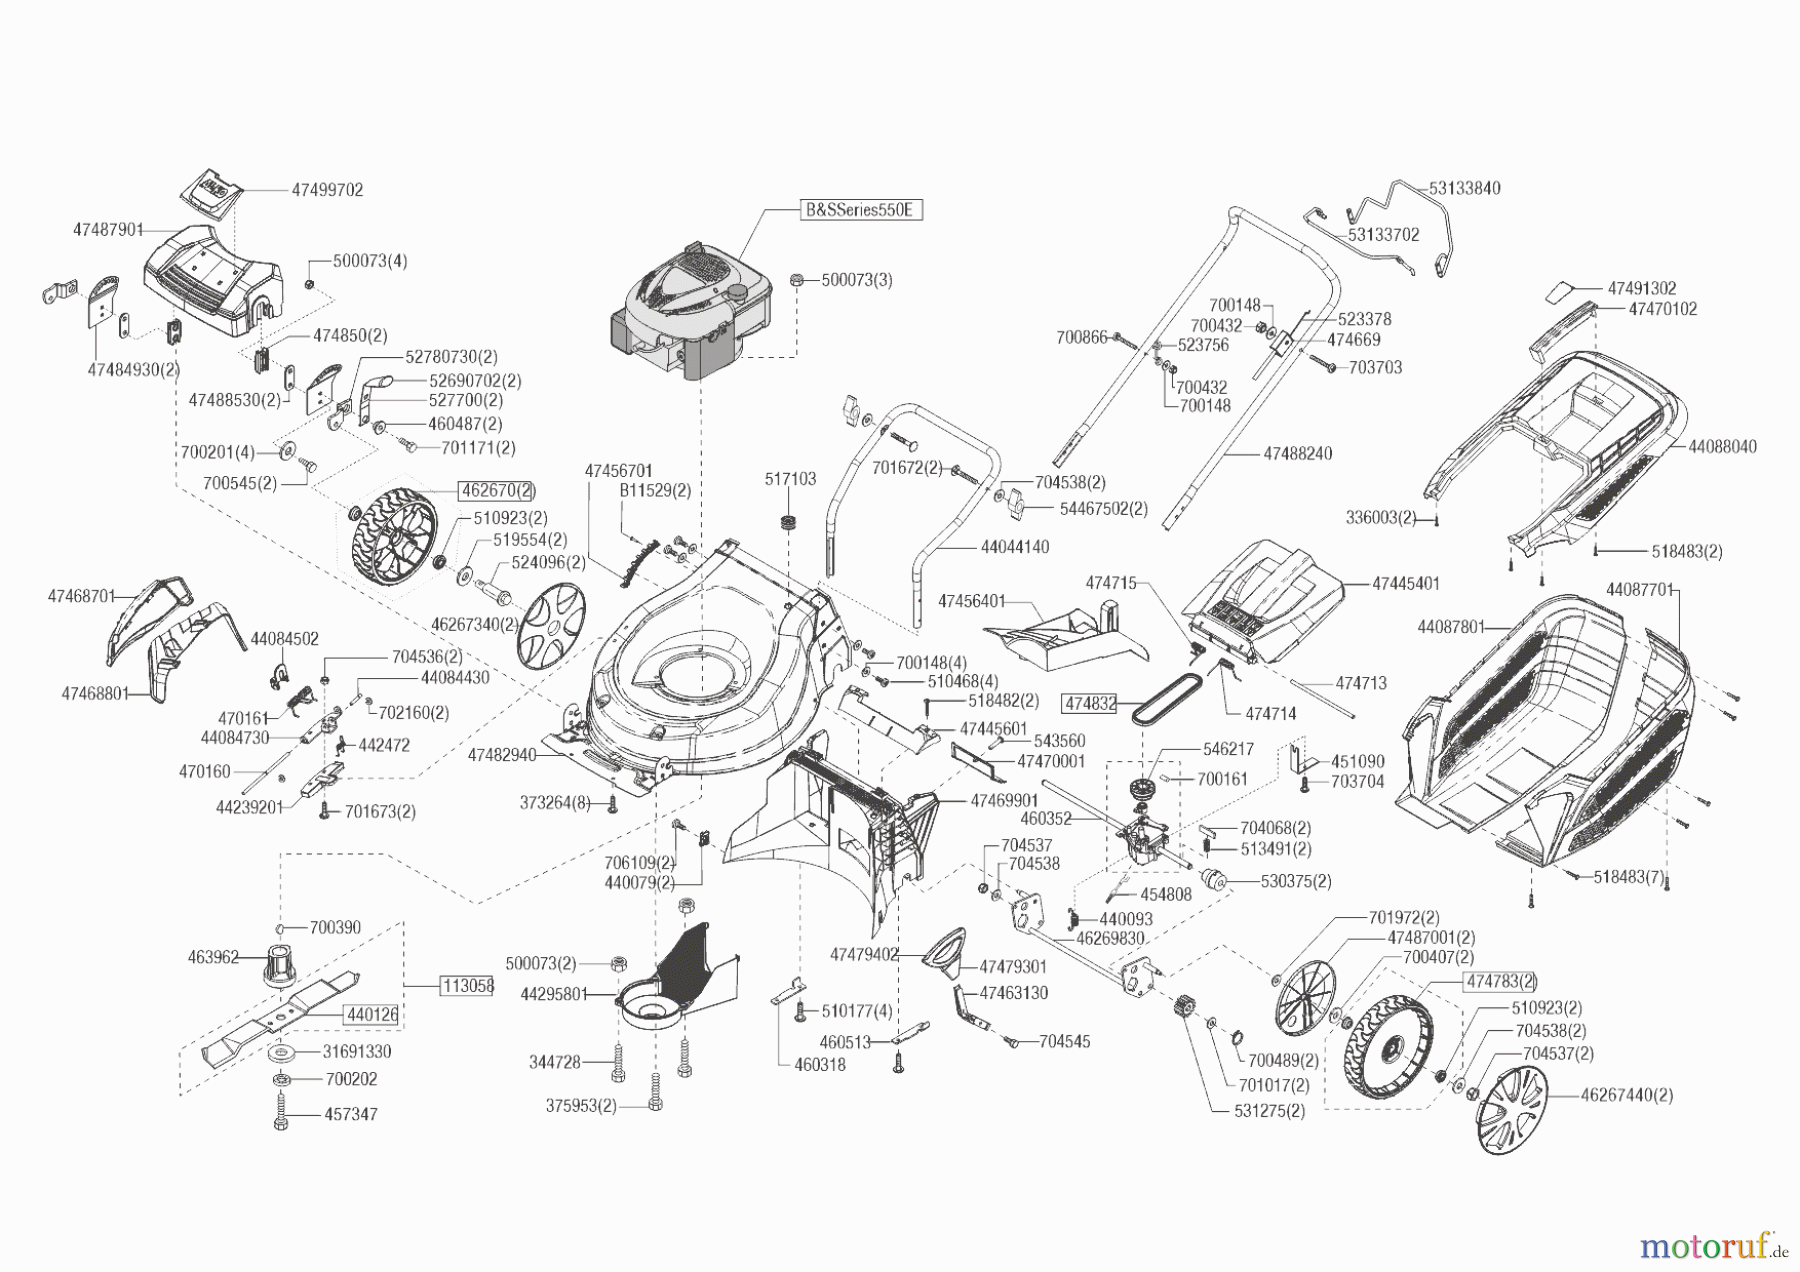 47499702
47487901
500073(4)
474850(2)
52780730(2)
52690702(2)
527700(2)
460487(2)
701171(2)
47484930(2)
47488530(2)
700201(4)
700545(2)
462670(2)
510923(2)
519554(2)
524096(2)
46267340(2)
B&SSeries550E
500073(3)
47456701
B11529(2)
517103
701672(2)
704538(2)
54467502(2)
44044140
53133840
53133702
700148
700432
523378
474669
700866
523756
703703
700432
700148
47488240
47491302
47470102
44088040
336003(2)
518483(2)
44087701
44087801
518483(7)
47468701
47468801
44084502
704536(2)
44084430
702160(2)
470161
44084730
442472
470160
44239201
701673(2)
47482940
373264(8)
700148(4)
510468(4)
518482(2)
47445601
543560
47470001
47469901
47456401
474715
47445401
474832
474714
474713
546217
700161
451090
703704
460352
704068(2)
513491(2)
530375(2)
454808
440093
46269830
704537
704538
706109(2)
440079(2)
700390
463962
113058
440126
31691330
700202
457347
500073(2)
44295801
344728
375953(2)
510177(4)
460318
47479402
47479301
47463130
460513
704545
701972(2)
47487001(2)
700407(2)
474783(2)
510923(2)
704538(2)
704537(2)
46267440(2)
700489(2)
701017(2)
531275(2)
motoruf.de